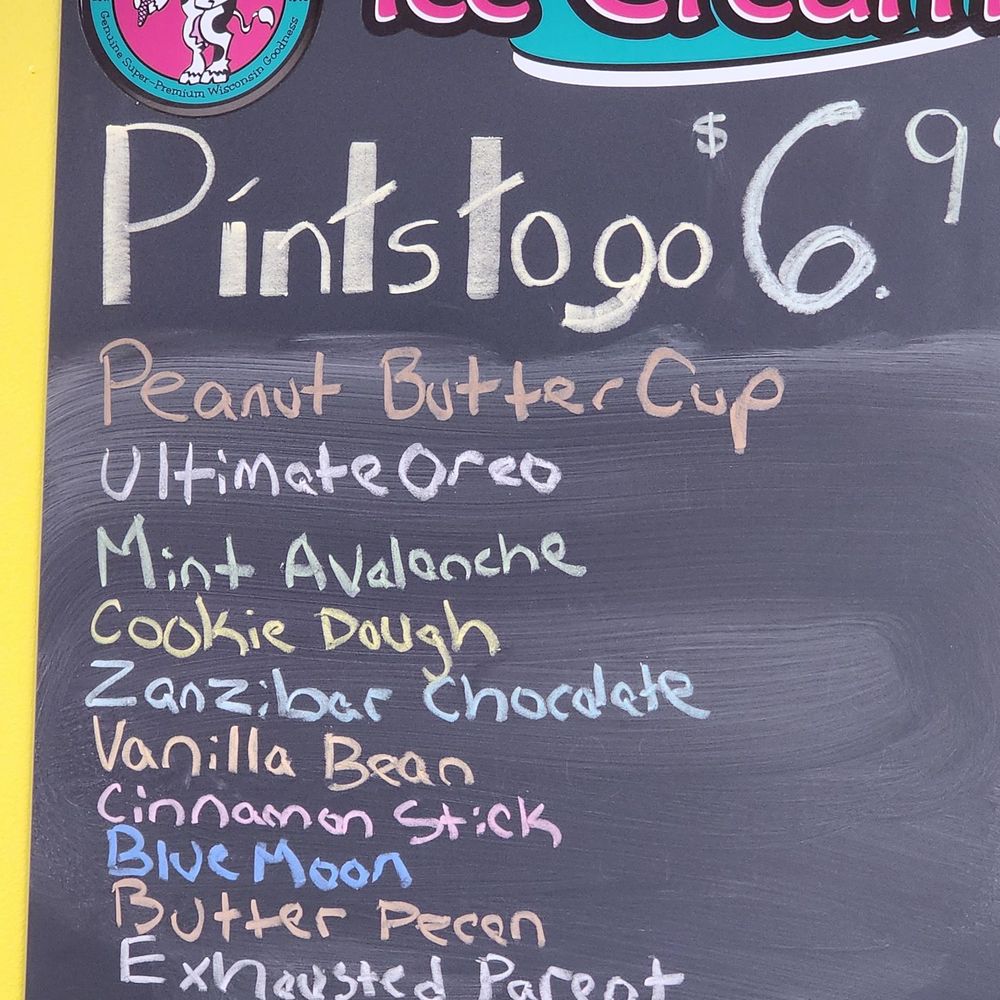 Ice Cream
Genuine Super-Premium Wisconsin Goodness
Pints to go $6.99
Peanut Butter Cup
Ultimate Oreo
Mint Avalanche
Cookie Dough
Zanzibar Chocolate
Vanilla Bean
Cinnamon Stick
Blue Moon
Butter Pecan
Exhausted Parent